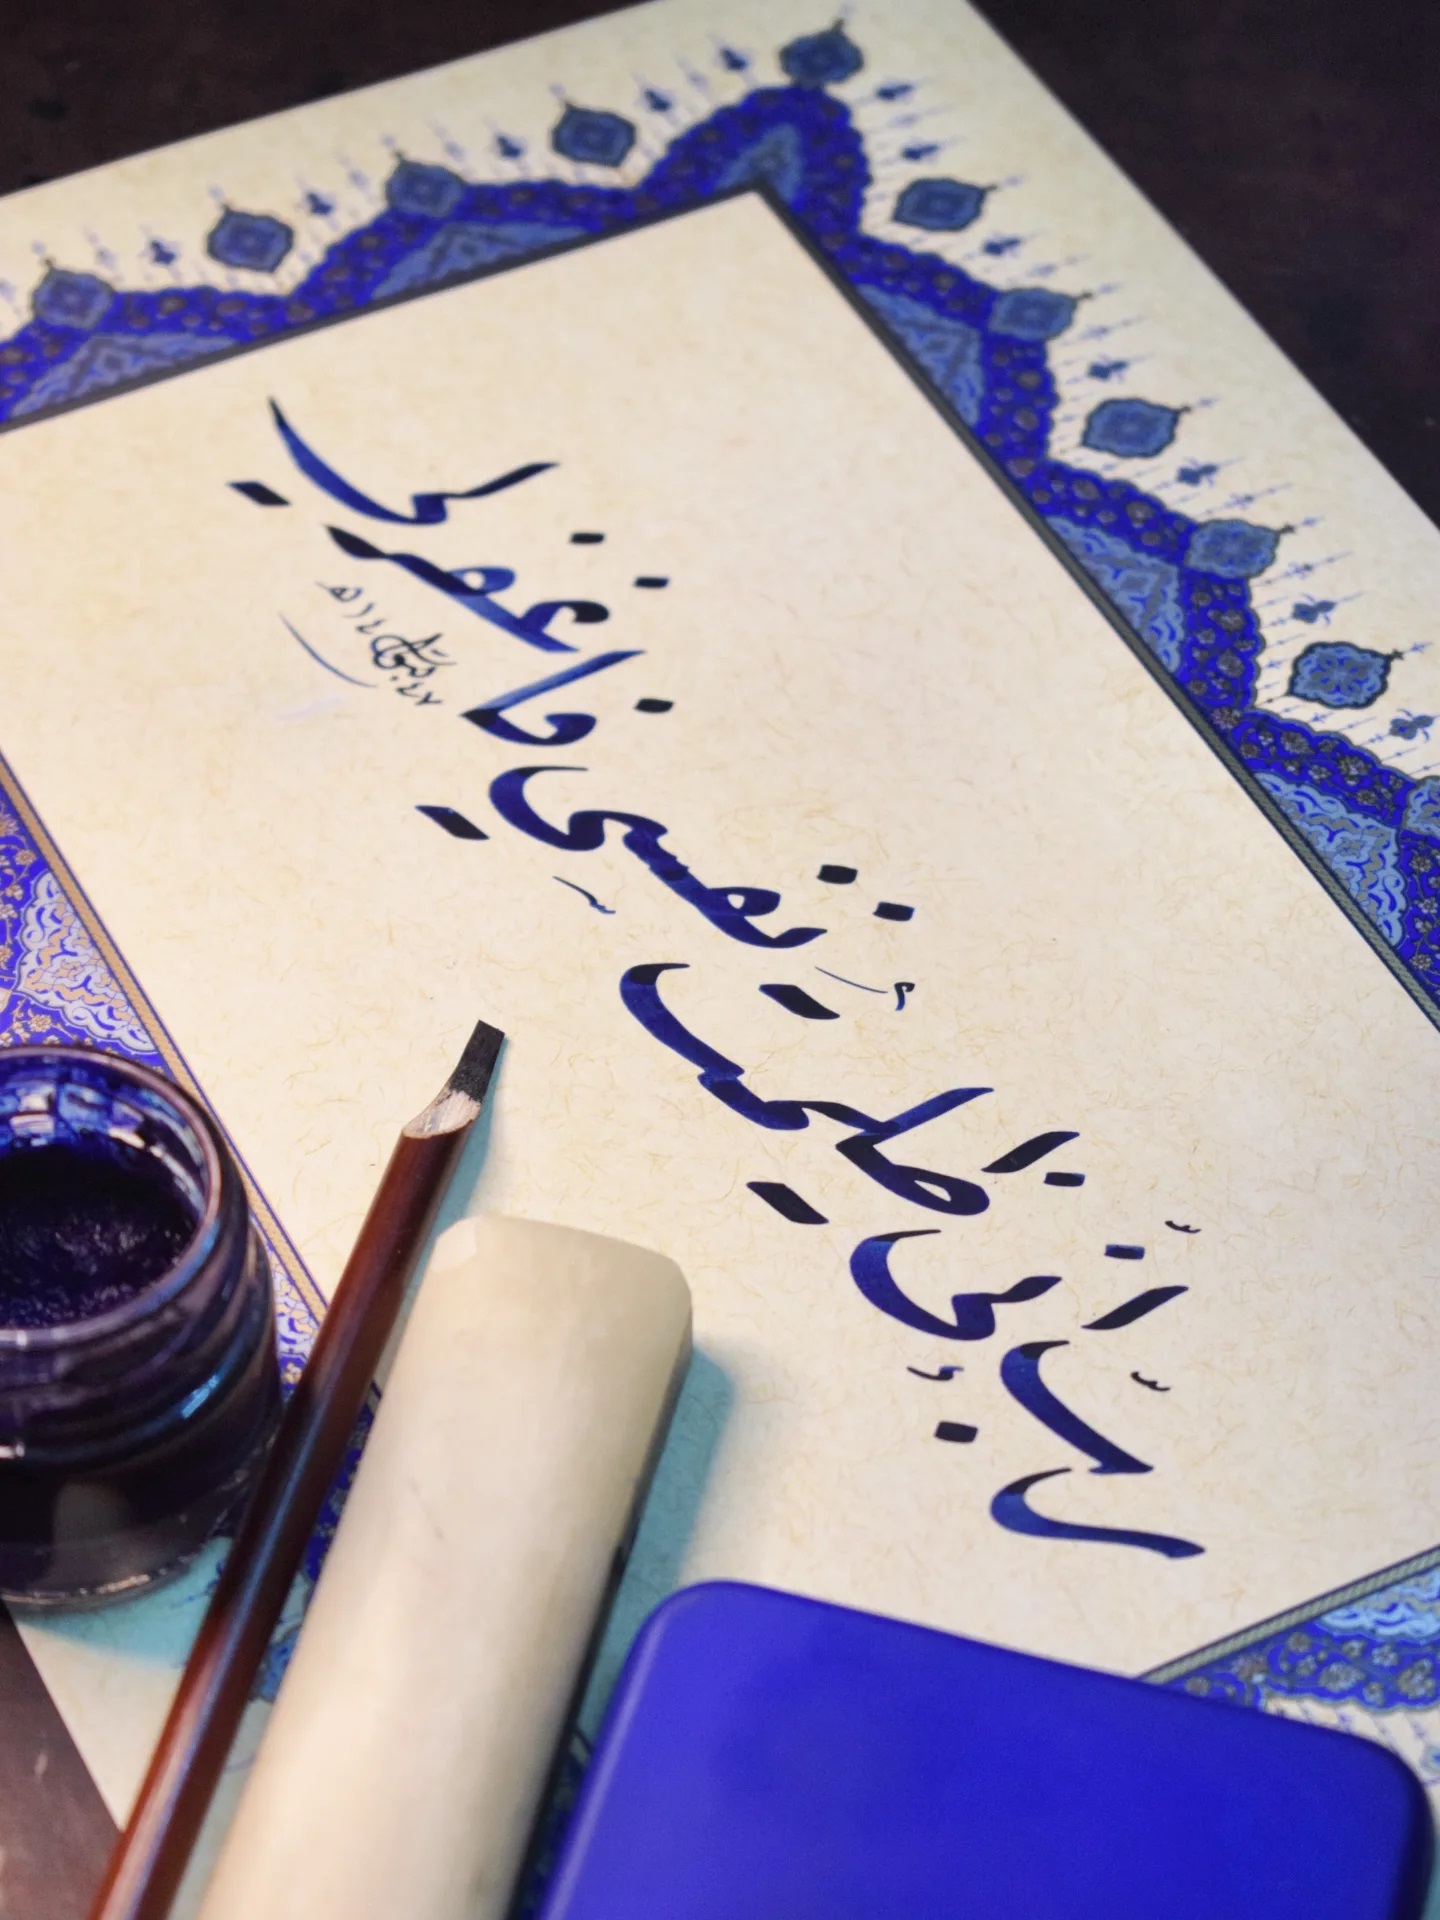 ربّ إنّي ظلمتُ نفسي فاغفر لي